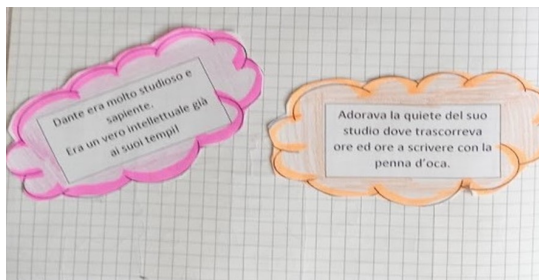 Dante era molto studioso e
sapiente.
Era un vero intellettuale già
ai suoi tempi!
Adorava la quiete del suo
studio dove trascorreva
ore ed ore a scrivere con la
penna d'oca.